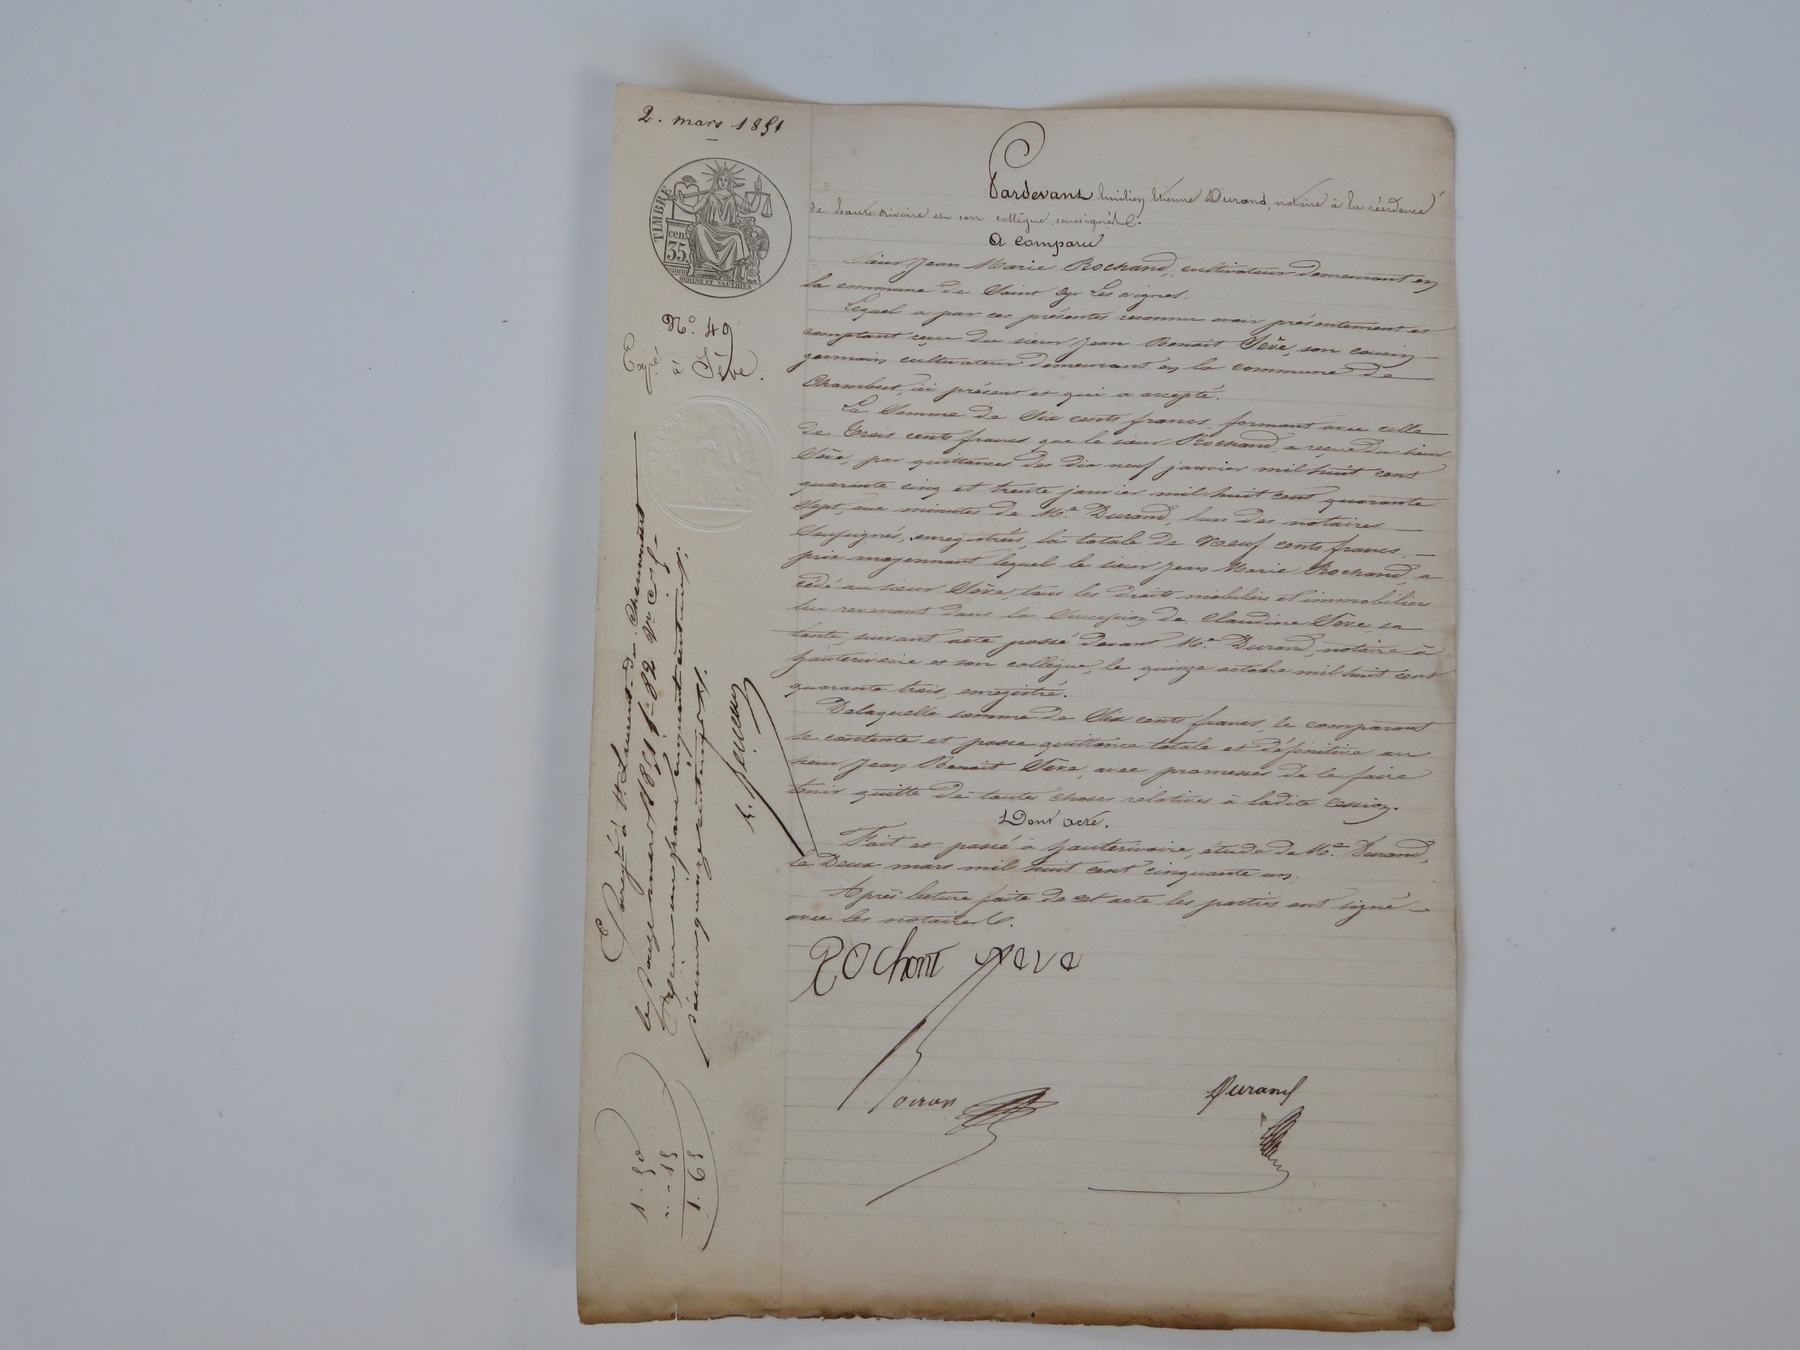 2. mars 1851
TIMBRE
cen.
35.
N.º 49
Exp.
à Sève.
Pardevant Émilien Étienne Durand, notaire à la résidence
de haute rivoire et son collègue, soussignés.
A comparu
Sieur Jean Marie Rochand, cultivateur demeurant en
la commune de Saint Cyr les vignes.
Lequel a par ces présentes reconnu avoir présentement et
comptant reçu du sieur Jean Benoit Sève, son cousin
germain cultivateur demeurant en la commune de
Chambost, ici présent et qui a accepté.
La Somme de Six cents francs, formant avec celle
de Trois cents francs que le sieur Rochand a reçue du sieur
Sève, par quittances des dix neuf janvier mil huit cent
quarante cinq et trente janvier mil huit cent quarante
Sept, aux minutes de Me. Durand, l'un des notaires
Soussignés, enregistrées, la totale de Neuf cents francs,
prix moyennant lequel le sieur Jean Marie Rochand, a
cédé au sieur Sève, tous les droits mobiliers et immobiliers
lui revenant dans la Succession de Claudine Sève, sa
tante, suivant acte passé devant Me. Durand, notaire à
hauterivoire et son collègue, le quinze octobre mil huit cent
quarante trois, enregistré.
Delaquelle somme de Six cents francs, le comparant
se contente et passe quittance totale et définitive au
sieur Jean Benoit Sève, avec promesses de le faire
tenir quitte de toutes choses relatives à ladite cession.
Dont acte.
Fait et passé à hauterivoire, étude de Me. Durand,
le Deux mars mil huit cent cinquante un.
Après lecture faite de cet acte les parties ont signé
avec les notaires.
Rochont Seve
Durand
Enregé à St Laurent-de-Chamousset
le douze mars 1851 fo 82 Vo
Reçu un franc cinquante centimes
décime quinze centimes
1.50
" 15
1.65